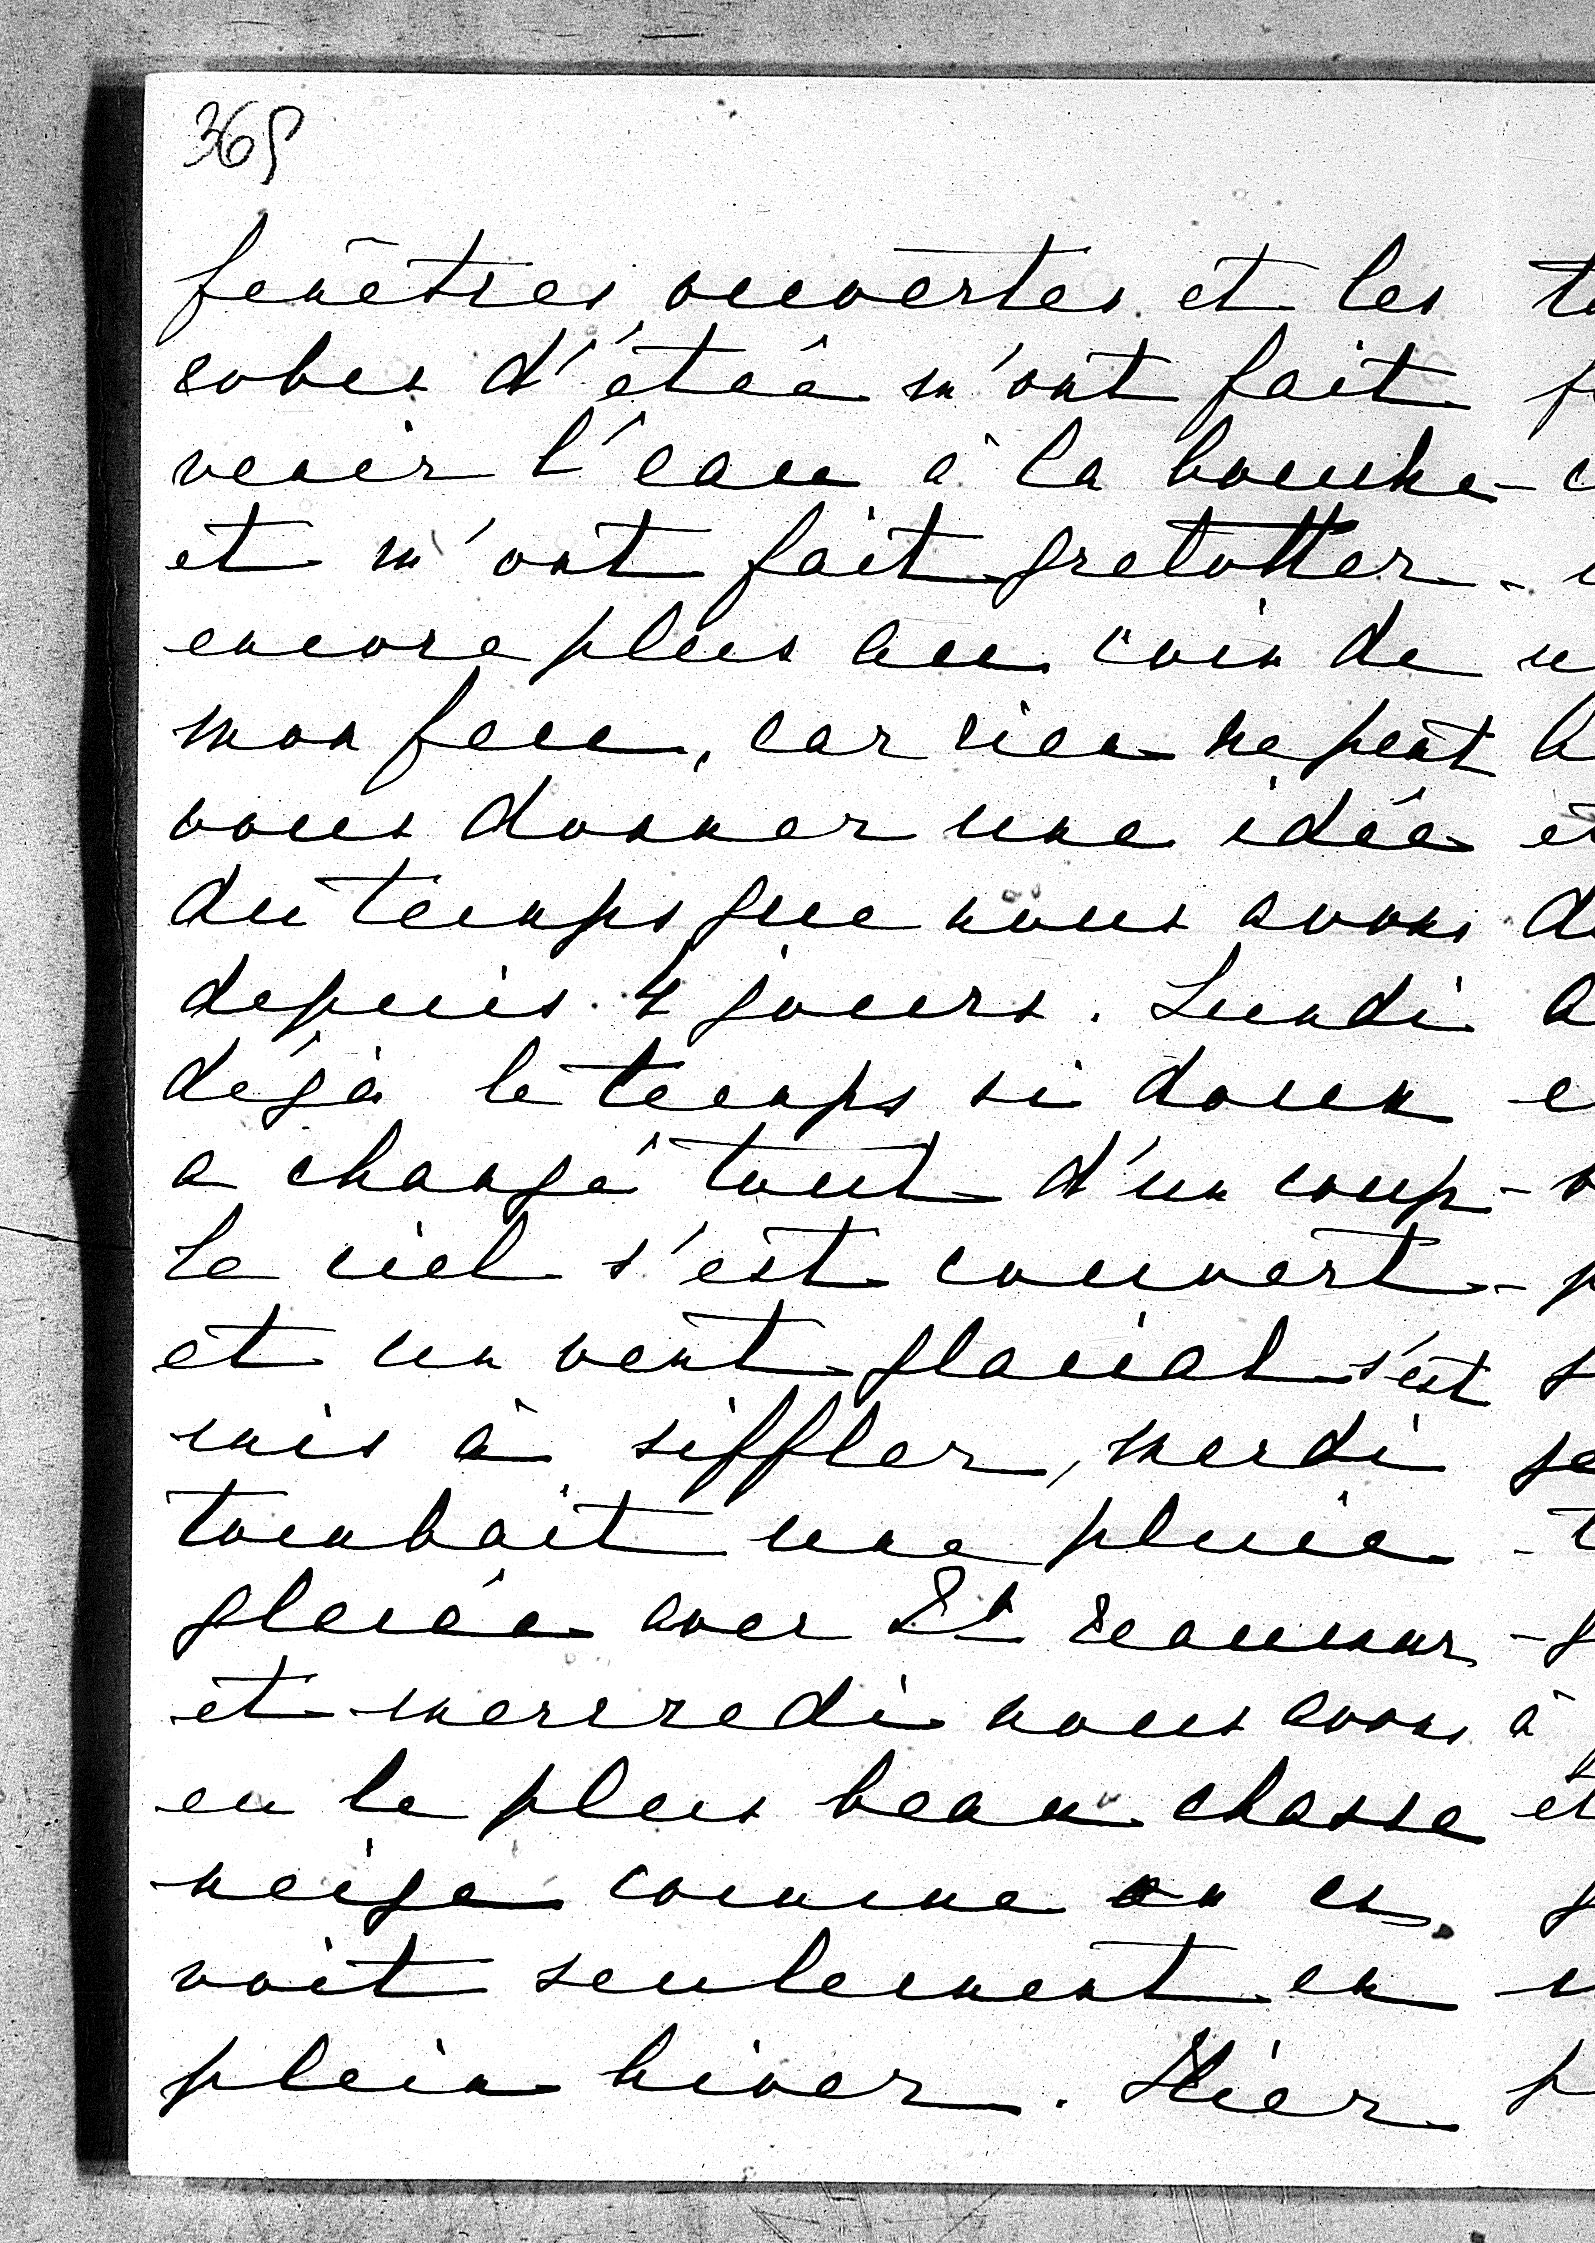 365
fenêtres ouvertes et les
robes d'étée m'ont fait
venir l'eau à la bouche
et m'ont fait grelotter
encore plus au coin de
mon feu, car rien ne peut
vous donner une idée
du temps que nous avons
depuis 4 jours. Lundi
déjà le temps si doux
a changé tout d'un coup -
le ciel s'est couvert -
et un vent glacial s'est
mis à siffler, merdi
tombait une pluie
glacée avec 2½ reaumur -
et mercredi nous avons
eu le plus beau chasse
neige comme on en
voit seulement en
plein hiver. Hier